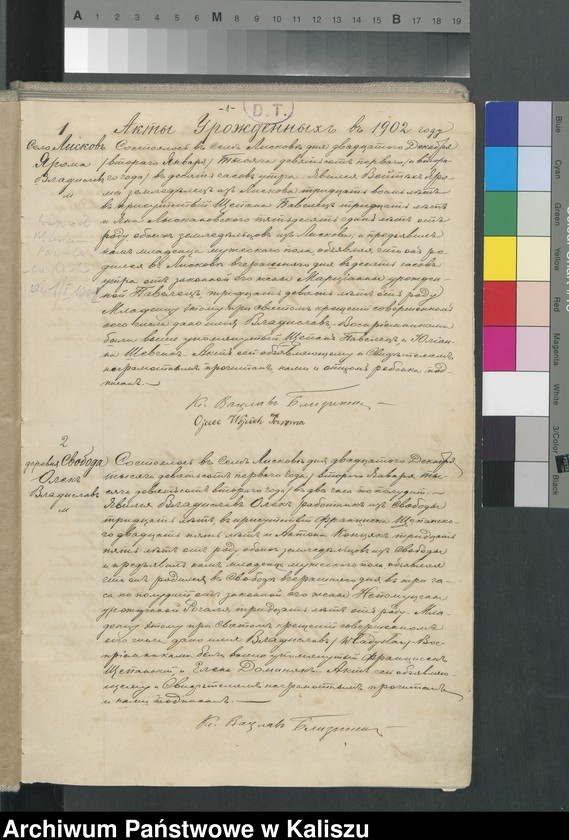 -1-
D.T.
Акты Урожденныхъ въ 1902 году
1
Село Лисковъ
Ярома
Владиславъ
м
Состоялось въ селѣ Лисковѣ дня двадцатаго Декабря
/втораго Января/ тысяча девятьсотъ перваго /и втора-
го года/ въ десять часовъ утра. Явился Войтехъ Яро-
ма земледѣлецъ изъ Лискова тридцать восемь лѣтъ
въ присутствіи Щепана Павелецъ тридцать лѣтъ
и Яна пятьдесятъ одинъ лѣтъ отъ
роду обоихъ земледѣльцовъ изъ Лискова, и предъявилъ
намъ младенца мужескаго пола объявляя что онъ ро-
дился въ Лисковѣ вчерашняго дня въ десять часовъ
утра отъ законной его жены Маріанны урожден-
ной Павелецъ, тридцать девять лѣтъ отъ роду
Младенцу этому при святомъ крещеніи совершенномъ
сего числа дано имя Владиславъ. Воспріемниками
были выше упомянутый Щепанъ Павелецъ и Юліан-
на Шевчикъ. Актъ сей объявляющему и Свидѣтелямъ
неграмотнымъ прочитанъ нами и отцомъ ребенка под-
писанъ.
Кс. Вацлавъ Близинскій
Ojciec Wojciech Jaroma
2
деревня Свобода
Олекъ
Владиславъ
м
Состоялось въ селѣ Лисковѣ дня двадцатаго Декабря
тысяча девятьсотъ перваго года /втораго Января ты-
сяча девятьсотъ втораго года/ въ два часа по полудни.
Явился Владиславъ Олекъ работникъ изъ Свободы
тридцать лѣтъ въ присутствіи Франциска Щепанска-
го двадцать пять лѣтъ и Антона тридцать
пять лѣтъ отъ роду обоихъ земледѣльцовъ изъ Свободы
и предъявилъ намъ младенца мужескаго пола объявляя
что онъ родился въ Свободѣ вчерашняго дня въ три ча-
са по полудни отъ законной его жены Непомуцены
урожденной Рогаля тридцать лѣтъ отъ роду. Мла-
денцу этому при святомъ крещеніи совершенномъ
сего числа дано имя Владиславъ /Władysław/ Вос-
пріемниками были выше упомянутый Францискъ
Щепанскій и Елена Доминякъ. Актъ сей объявляю-
щему и Свидѣтелямъ неграмотнымъ прочитанъ
и нами подписанъ.
Кс. Вацлавъ Близинскій
A 1 2 3 4 5 6 7 8 9 10 M 11 12 13 14 15 B 17 18 19
Blue
Cyan
Green
Yellow
Red
Magenta
White
3/Color
Black
Archiwum Państwowe w Kaliszu